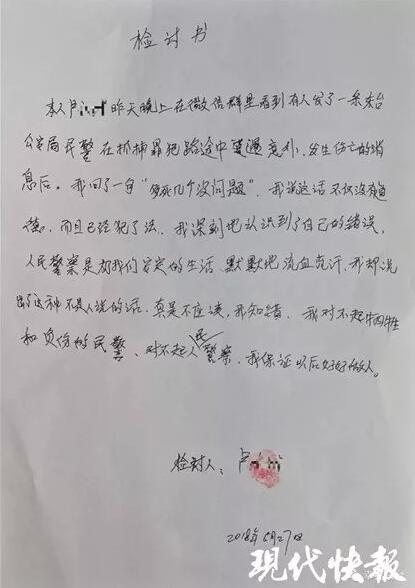 检讨书
本人卢 昨天晚上在微信群里看到有人发了一条东台
公安局民警在抓捕罪犯路途中遭遇意外,发生伤亡的消
息后。我回了一句“多死几个没问题”,我说这话不仅没有道
德,而且已经犯了法,我深刻地认识到了自己的错误,
人民警察是为我们安定的生活,默默地流血流汗,我却说
出了这种不是人说的话,真是不应该,我知错,我对不起牺牲
和负伤的民警,对不起人民警察,我保证以后好好做人。
检讨人:卢
2018年5月27日
现代快报